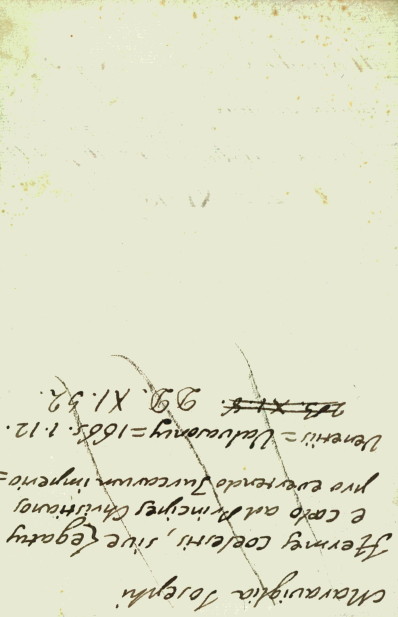 Maraviglia Josephi
Hermes Coelestis, sive Legatus
e cœlo ad Principes Christianos
pro evertendo Turcarum imperio=
Venetiis= Valvasensy=1665. 1. 12.
DD. XI. 32.